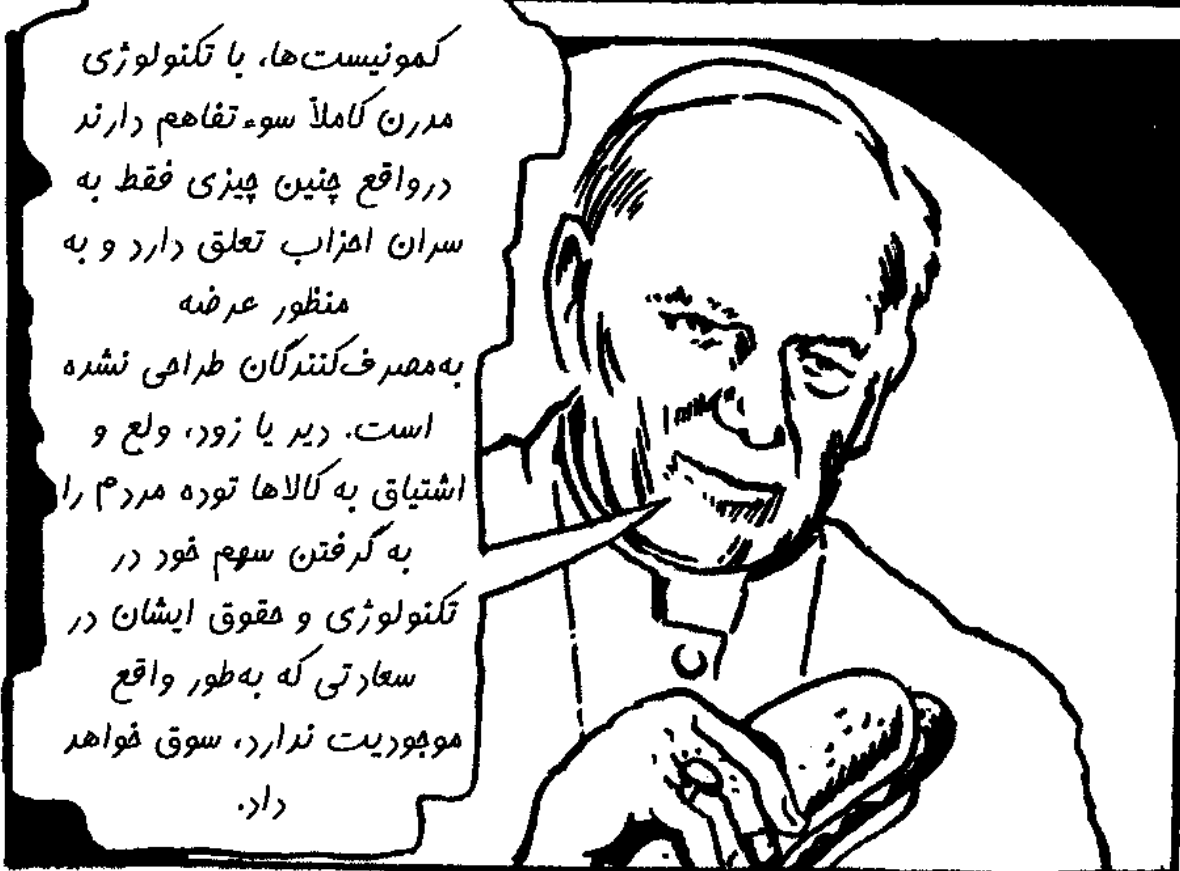 کمونیست‌ها، با تکنولوژی
مدرن کاملاً سوء تفاهم دارند
درواقع چنین چیزی فقط به
سران احزاب تعلق دارد و به
منظور عرضه
به‌مصرف‌کنندگان طراحی نشده
است. دیر یا زود، ولع و
اشتیاق به کالاها توده مردم را
به گرفتن سهم خود در
تکنولوژی و حقوق ایشان در
سعادتی که به‌طور واقع
موجودیت ندارد، سوق خواهد
داد.